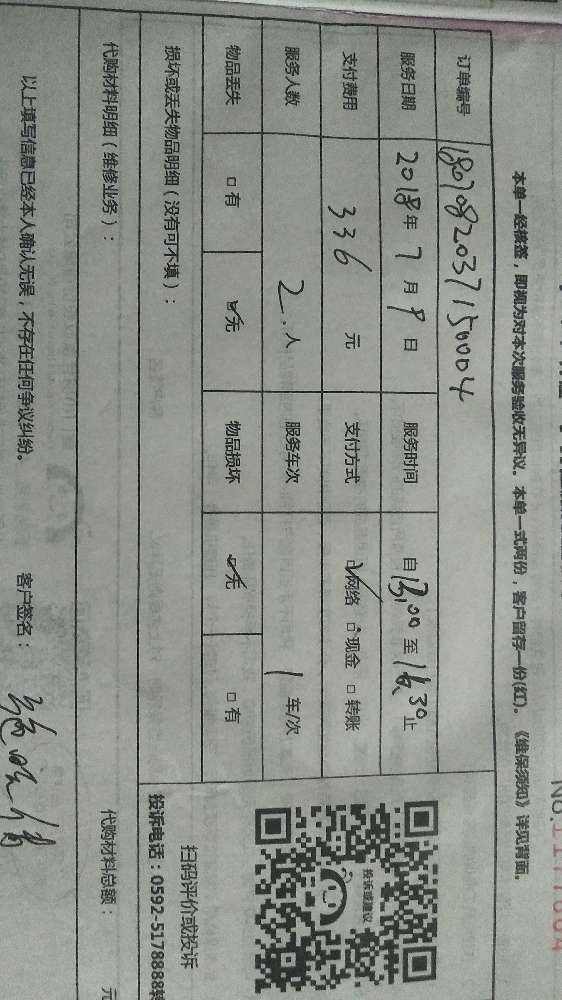 No.1177804
本单一经核签，即视为对本次服务验收无异议。本单一式两份，客户留存一份(红)。《维保须知》详见背面。
订单编号 1807082037150004
服务日期 2018年7月9日 服务时间 自13:00至16:30止
支付费用 336元 支付方式 ☑网络 □现金 □转账
服务人数 2.人 服务车次 1车/次
物品丢失 □有 ☑无 物品损坏 ☑无 □有
损坏或丢失物品明细（没有可不填）：
投诉或建议
扫码评价或投诉
投诉电话：0592-5178888转
代购材料明细（维修业务）：
代购材料总额： 元
以上填写信息已经本人确认无误，不存在任何争议纠纷。 客户签名：